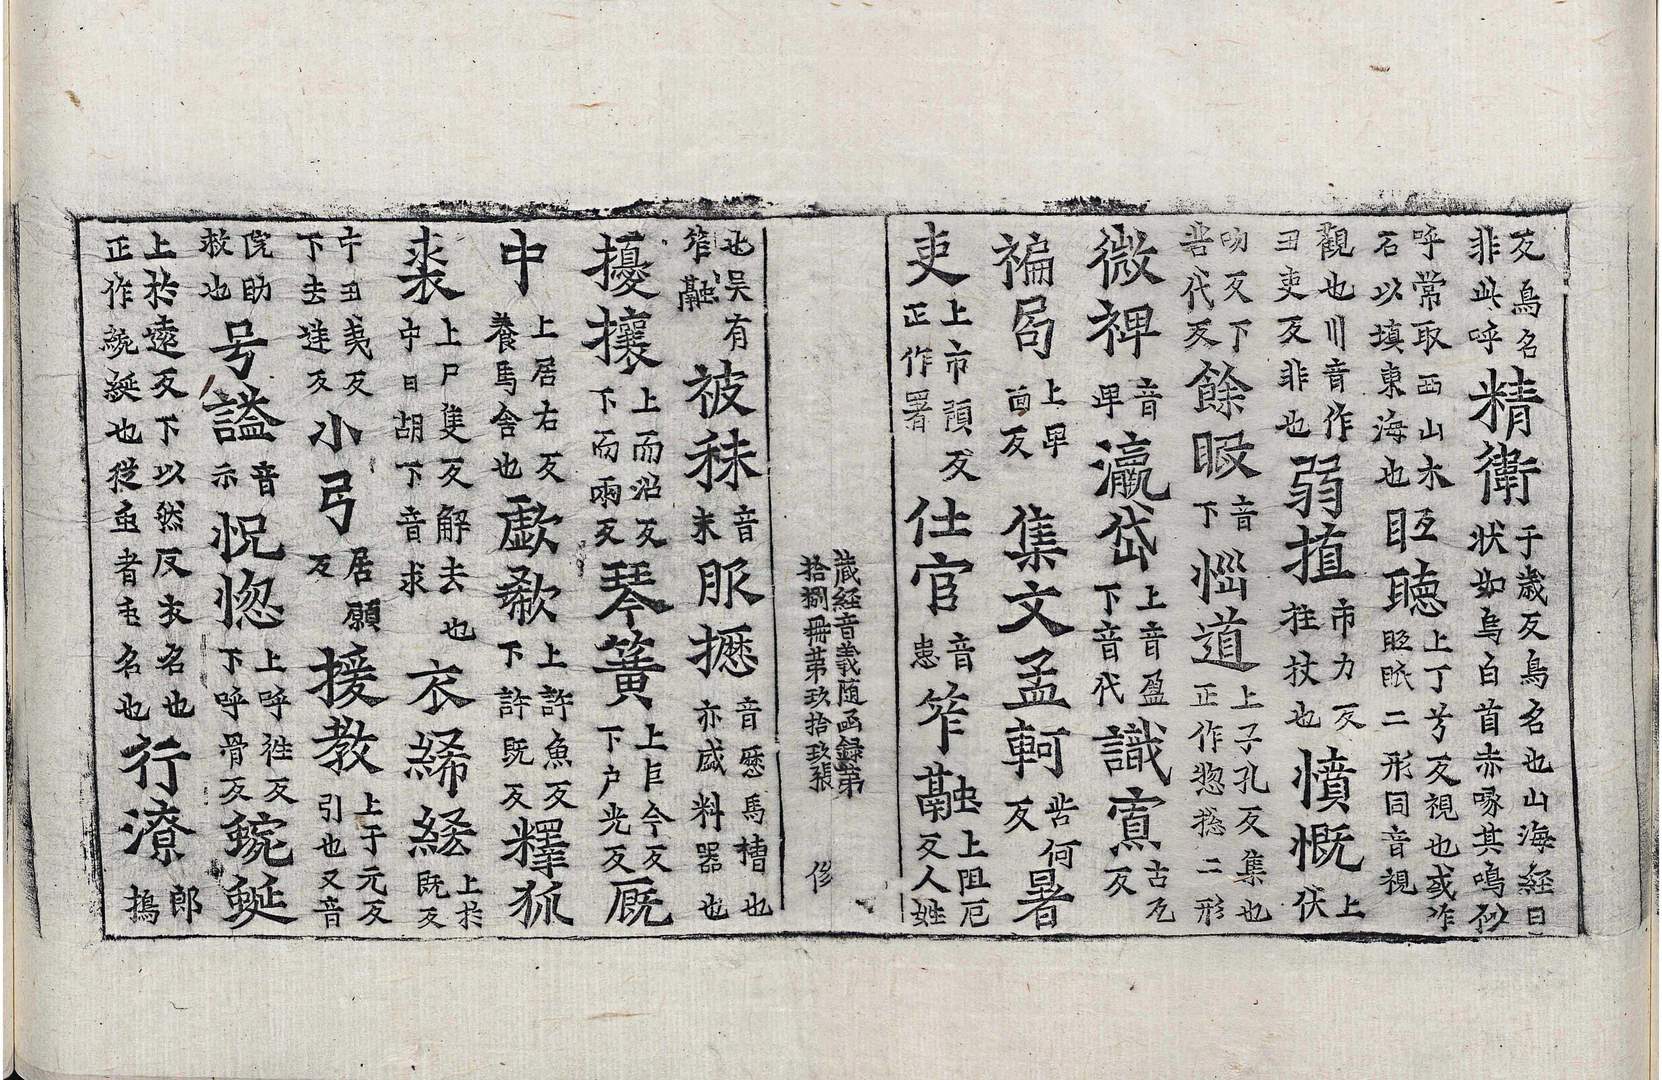 反鳥名非此呼精衛于歳反鳥名也山海経曰状如烏白首赤喙其鳴自
呼常取西山木石以填東海也𥄎聴上丁兮反視也或作眡眂二形同音視
觀也川音作丑吏反非也弱植市力反拄杖也憤慨上伏
吻反下苦代反餘暇音下惱道上子孔反集也正作惣揔二形
微禆音卑瀛岱上音盈下音代識𡩋古瓦反
褊局上卑面反集文孟軻苦何反暑
吏上市預反正作署仕官音患笮融上阻厄反人姓
蔵経音義随函録第
拾捌冊苐玖拾玖張
俢
也吴有笮融被秣音末服櫪音歴馬槽也亦盛料器也
擾攘上而沼反下而兩反琴簧上巨今反下户光反厩
中上居右反養馬舎也歔欷上許魚反下許既反釋狐
裘上尸隻反解去也中日胡下音求衣絺綌上於既反
中丑夷反下去逆反小弓居願反援教上于元反引也又音
院助救也号謚音示怳惚上呼往反下呼骨反蜿蜒
上於遠反下以然反衣名也正作綩綖也從虫者虫名也行潦郎擣